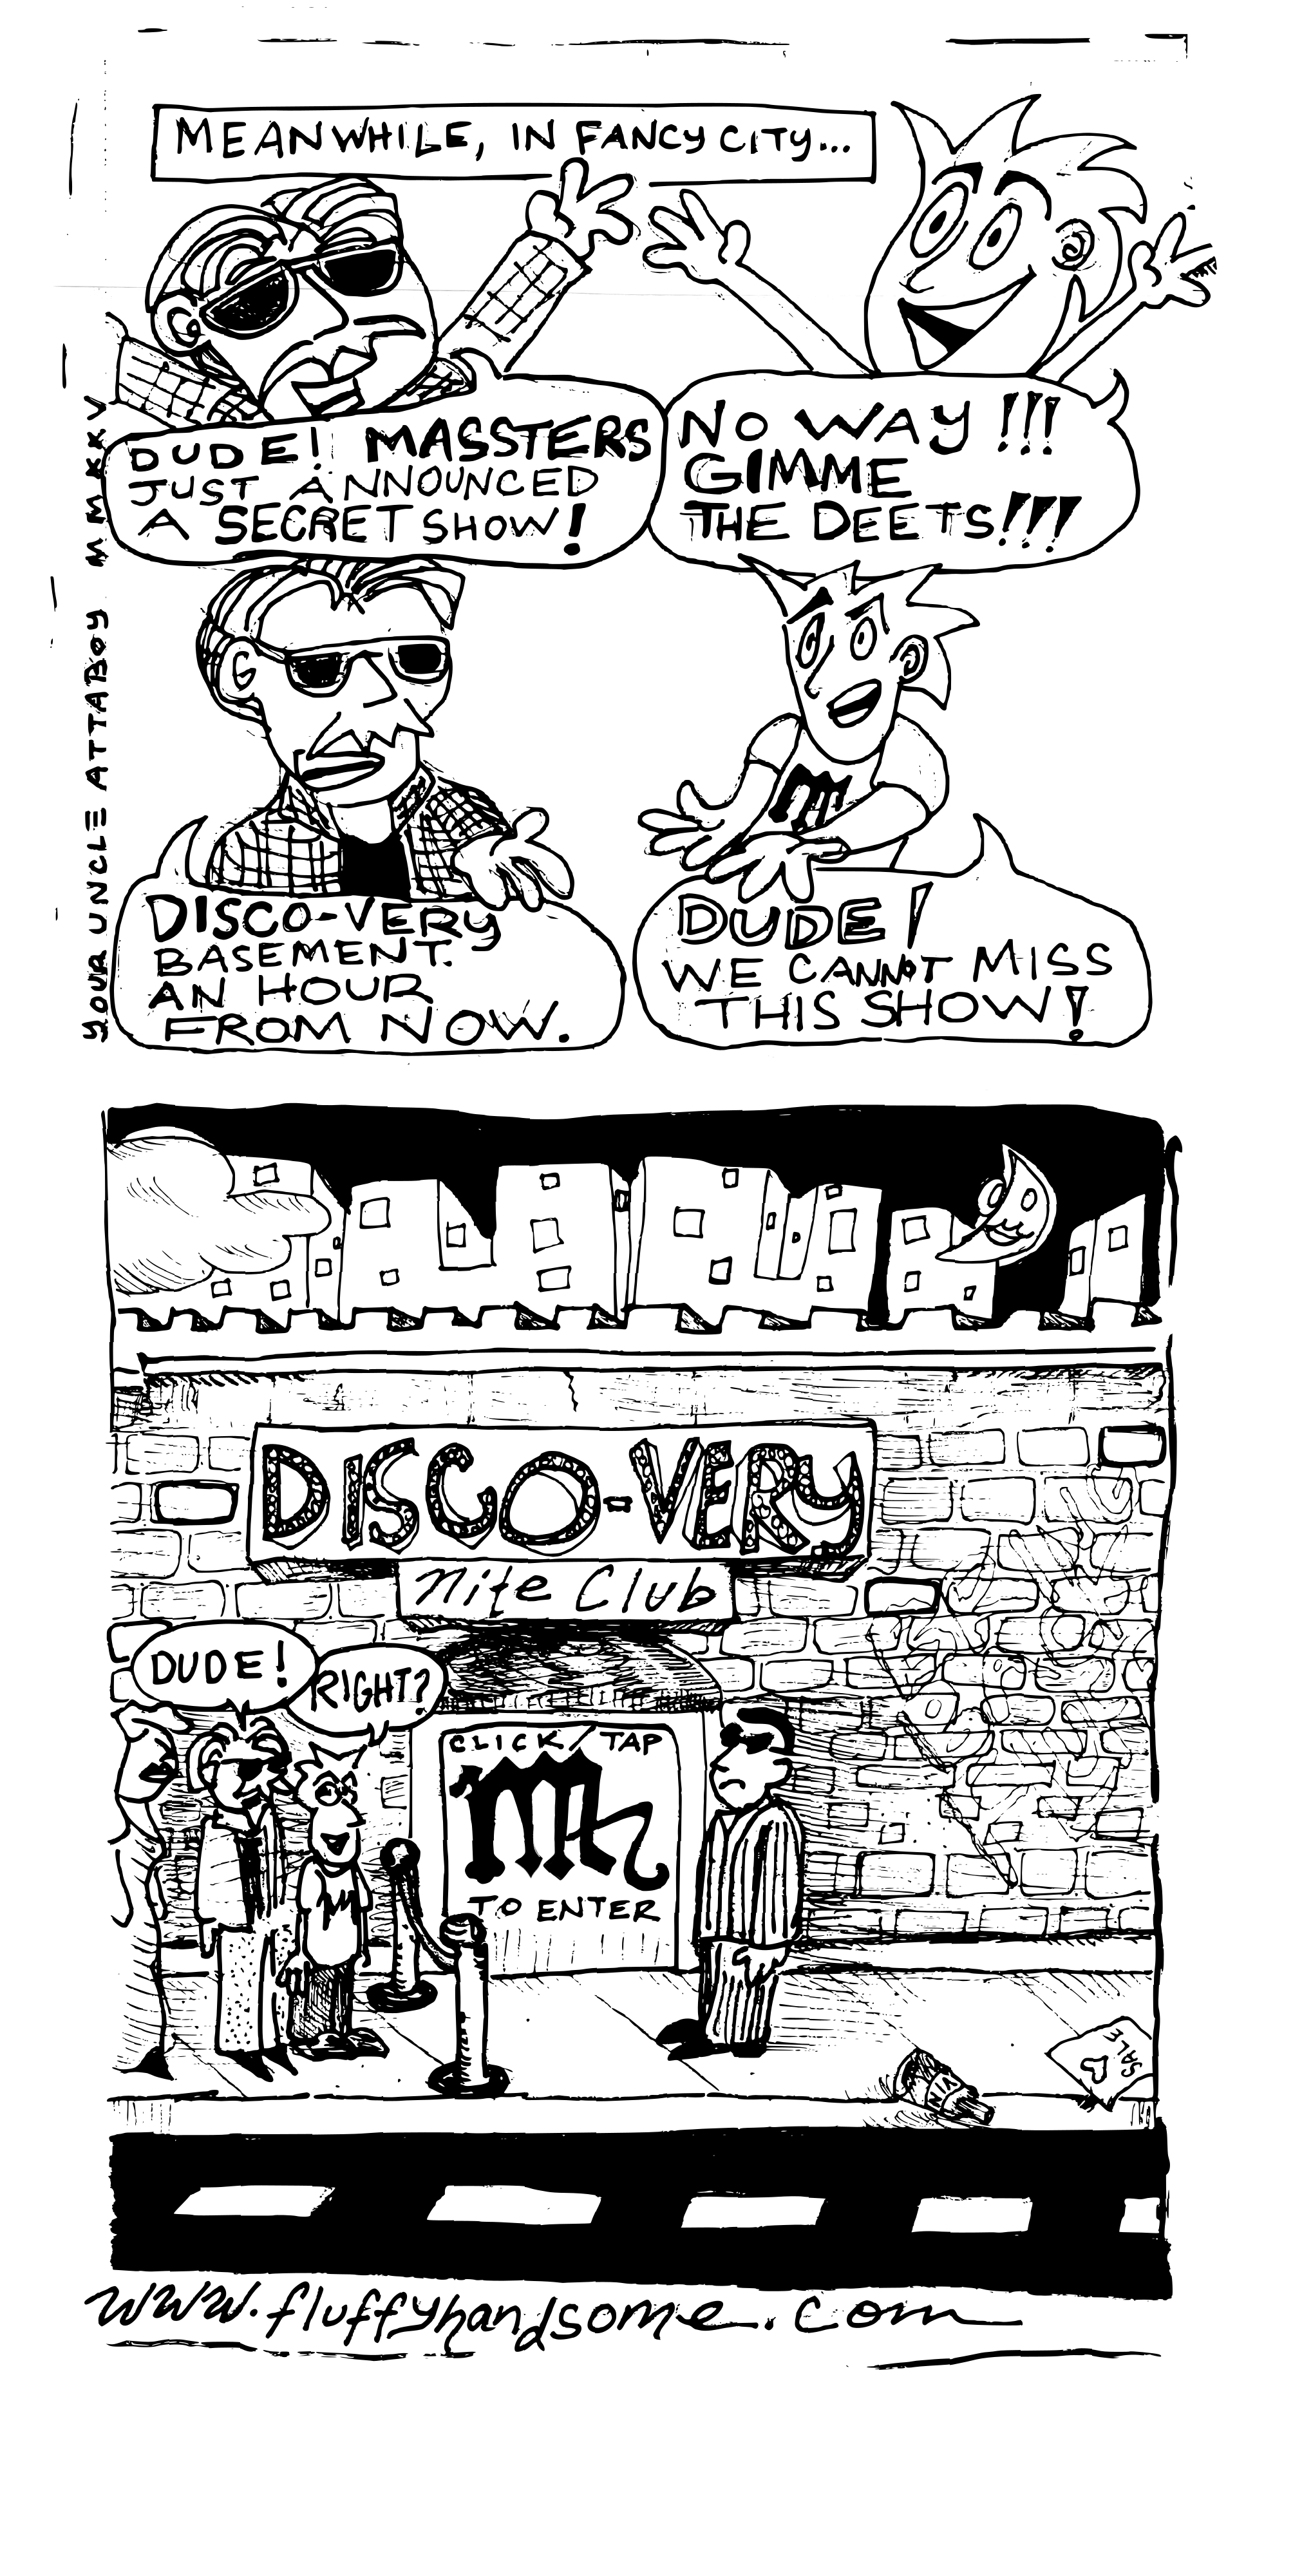 MEANWHILE, IN FANCY CITY...
DUDE! MASSTERS
JUST ANNOUNCED
A SECRET SHOW!
NO WAY!!!
GIMME
THE DEETS!!!
DISCO-VERY
BASEMENT.
AN HOUR
FROM NOW.
DUDE!
WE CANNOT MISS
THIS SHOW!
YOUR UNCLE ATTABOY MMXXV
DISCO-VERY
Nite Club
DUDE!
RIGHT?
CLICK/TAP
TO ENTER
SALE
www.fluffyhandsome.com